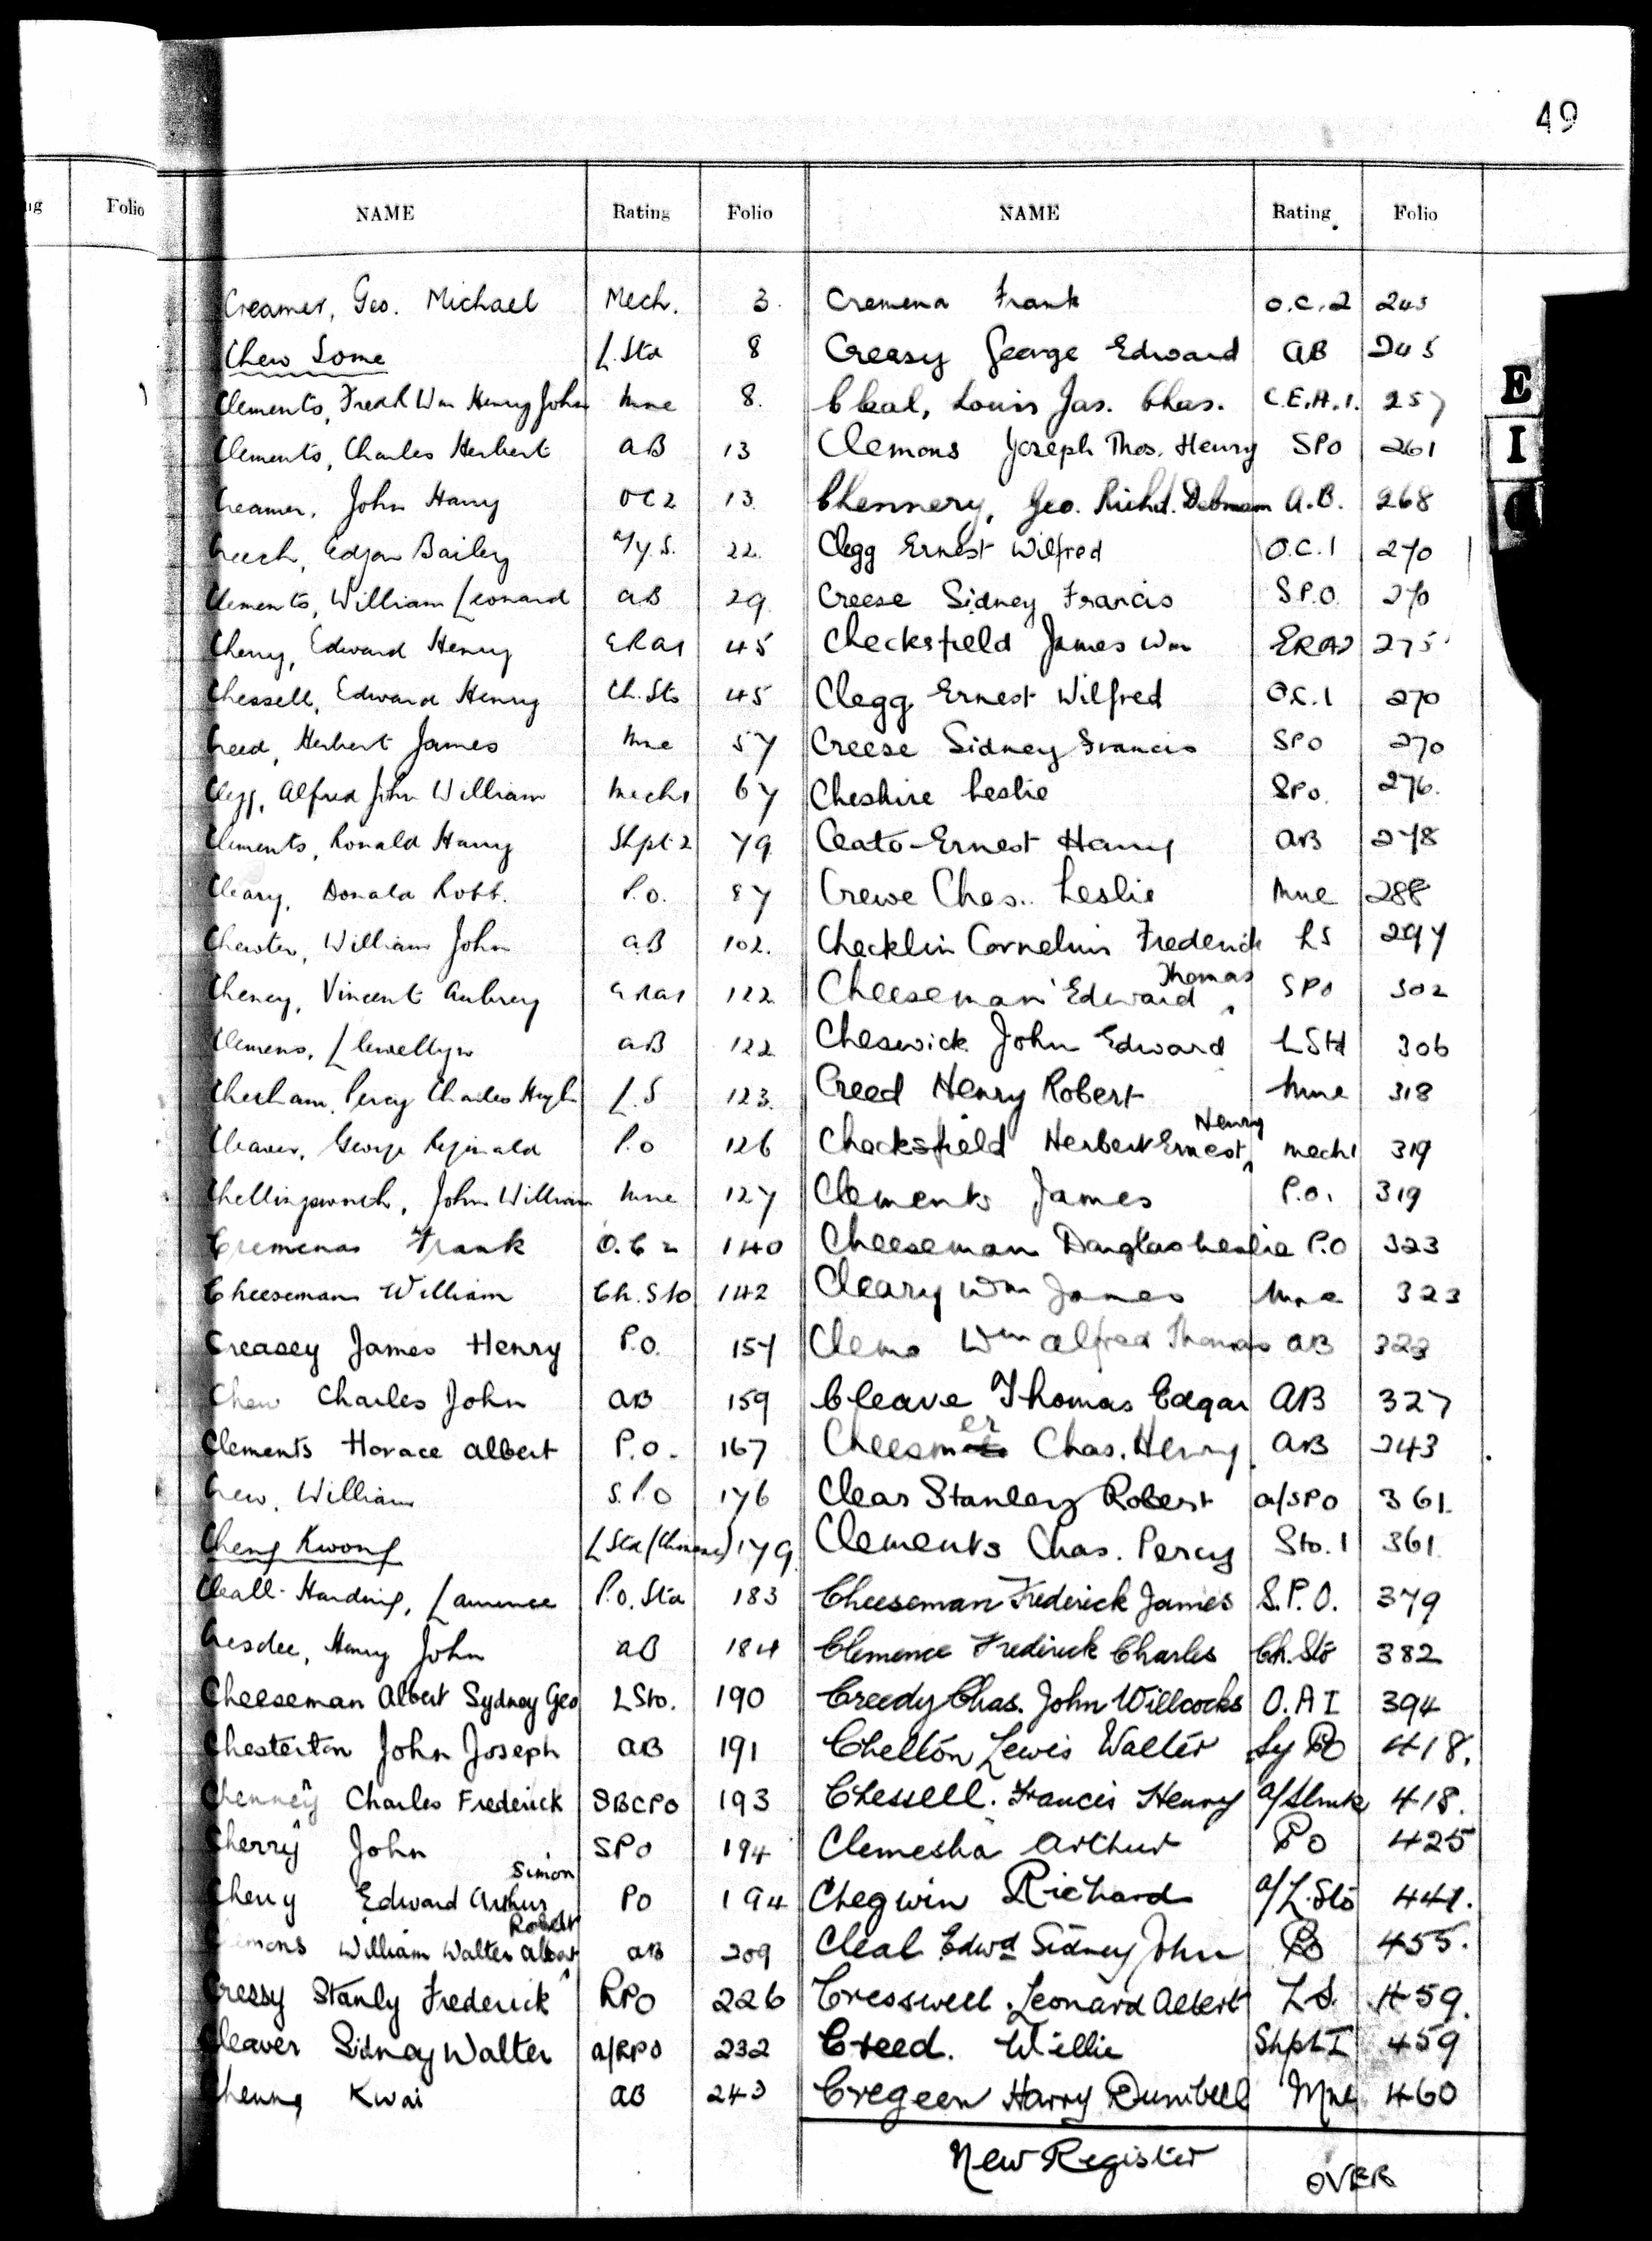 49
ng Folio
NAME Rating Folio NAME Rating Folio
Creamer, Geo. Michael Mech. 3.
Chew Some L.Std 8
Clements, Fredk Wm Henry John Mne 8.
Clements, Charles Herbert AB 13
Creamer, John Harry OC2 13.
Creech, Edgar Bailey a/y.S. 22.
Clements, William Leonard AB 29.
Cherry, Edward Henry ERA1 45
Chessell, Edward Henry Ch.Sto 45
Creed, Herbert James Mne 57
Clegg, Alfred John William Mech1 67
Clements, Ronald Harry Shpt 2 79.
Cleary, Donald Robt. P.O. 87
William John AB 102.
Cheney, Vincent Aubrey ERA1 122
Clemens, Llewellyn AB 122
Chesham, Percy Charles Hugh L.S 123.
Cleaver, George Reginald P.O 126
Chellingsworth, John William Mne 127
Cremenas Frank O.C 2 140
Cheeseman William Ch.Sto 142
Creasey James Henry P.O. 157
Chew Charles John AB 159
Clements Horace Albert P.O. 167
Crew, William S.P.O 176
Cheng Kwong L Std (Chinese) 179
Cleall-Harding, Laurence P.O.Std 183
Cresdee, Henry John AB 184
Cheeseman Albert Sydney Geo L Sto. 190
Chesterton John Joseph AB 191
Chenney Charles Frederick SBCPO 193
Cherry John SPO 194
Simon
Cherry Edward Arthur PO 194
Robert
Clemons William Walter Albert AB 209
Cressy Stanly Frederick RPO 226
Cleaver Sidney Walter a/RPO 232
Cheung Kwai AB 243
Cremena Frank O.C.2 243
Creasy George Edward AB 245
Cleal, Louis Jas. Chas. C.E.A.1. 257
Clemons Joseph Thos. Henry SPO 261
Chennery, Geo. Richd. Debnam A.B. 268
Clegg Ernest Wilfred O.C.1 270
Creese Sidney Francis S.P.O. 270
Checksfield James Wm ERA2 275
Clegg Ernest Wilfred O.C.1 270
Creese Sidney Francis SPO 270
Cheshire Leslie SPO. 276.
Ceato-Ernest Harry AB 278
Crewe Chas. Leslie Mne 288
Checklin Cornelius Frederick LS 297
Thomas
Cheeseman Edward SPO 302
Cheswick John Edward L Std 306
Creed Henry Robert Mne 318
Henry
Chacksfield Herbert Ernest Mech1 319
Clements James P.O. 319
Cheeseman Douglas Leslie P.O 323
Cleary Wm James Mne 323
Clemo Wm Alfred Thomas AB 323
Cleave Thomas Edgar AB 327
er
Cheesm Chas. Henry AB 243
Clear Stanley Robert a/SPO 361.
Clements Chas. Percy Sto.1 361.
Cheeseman Frederick James S.P.O. 379
Clemence Frederick Charles Ch.Sto 382
Creedy Chas. John Willcocks O.A I 394
Chelton Lewis Walter Sy PO 418.
Chessell. Francis Henry 418.
Clemesha Arthur PO 425
Chegwin Richard a/L.Sto 441.
Cleal Edwd Sidney John PO 455.
Cresswell Leonard Albert L.S. 459.
Creed. Willie Shpt I 459
Cregeen Harry Dumbell Mne 460
New Register OVER
E
I